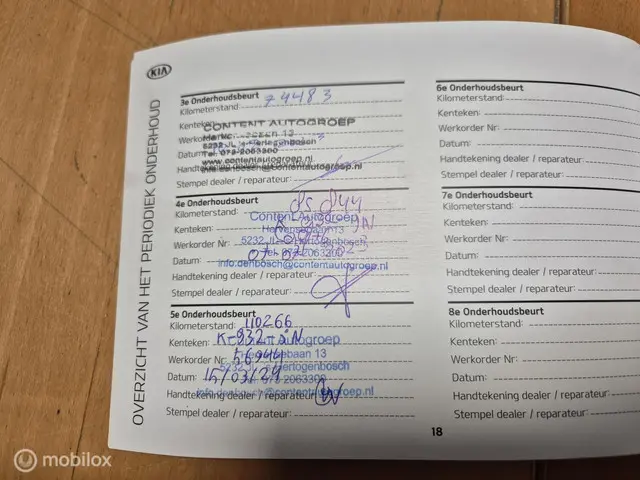 KIA
OVERZICHT VAN HET PERIODIEK ONDERHOUD
3e Onderhoudsbeurt
Kilometerstand: 74483
Kenteken:
CONTENT AUTOGROEP
Werkorder Nr:
5232 JL 's-Hertogenbosch
Datum:
Tel. 073-2063300
www.contentautogroep.nl
Handtekening dealer / reparateur:
info.denbosch@contentautogroep.nl
Stempel dealer / reparateur:
4e Onderhoudsbeurt
Kilometerstand: 85844
Content Autogroep
Kenteken:
Werkorder Nr:
5232
Datum:
Tel. 073-2063300
info.denbosch@contentautogroep.nl
Handtekening dealer / reparateur:
Stempel dealer / reparateur:
5e Onderhoudsbeurt
Kilometerstand: 110266
Kenteken:
Autogroep
Werkorder Nr:
Datum: 15/03/24
Handtekening dealer / reparateur:
Stempel dealer / reparateur:
6e Onderhoudsbeurt
Kilometerstand:
Kenteken:
Werkorder Nr:
Datum:
Handtekening dealer / reparateur:
Stempel dealer / reparateur:
7e Onderhoudsbeurt
Kilometerstand:
Kenteken:
Werkorder Nr:
Datum:
Handtekening dealer / reparateur:
Stempel dealer / reparateur:
8e Onderhoudsbeurt
Kilometerstand:
Kenteken:
Werkorder Nr:
Datum:
Handtekening dealer / reparateur:
Stempel dealer / reparateur:
18
mobilox